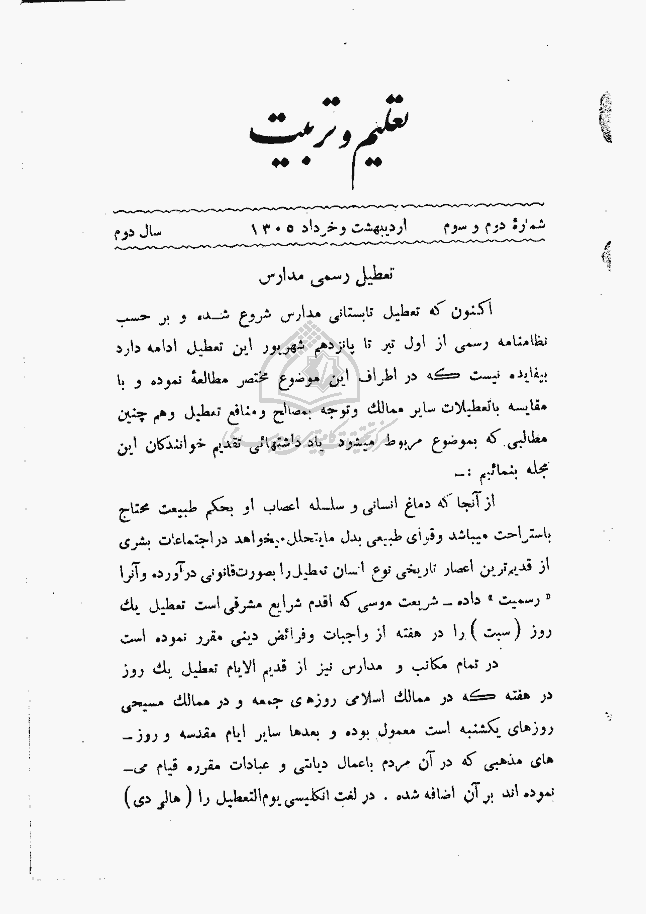 تعلیم و تربیت
شمارۀ دوم و سوم اردیبهشت و خرداد ۱۳۰۵ سال دوم
تعطیل رسمی مدارس
اکنون که تعطیل تابستانی مدارس شروع شده و بر حسب
نظامنامه رسمی از اول تیر تا پانزدهم شهریور این تعطیل ادامه دارد
بیفایده نیست که در اطراف این موضوع مختصر مطالعۀ نموده و با
مقایسه باتعطیلات سایر ممالک وتوجه بمصالح ومنافع تعطیل وهم چنین
مطالبی که بموضوع مربوط میشود یاد داشتهائی تقدیم خوانندکان این
مجله بنمائیم :ـ
از آنجا که دماغ انسانی و سلسله اعصاب او بحکم طبیعت محتاج
باستراحت میباشد وقوای طبیعی بدل مایتحلل میخواهد دراجتماعات بشری
از قدیم‌ترین اعصار تاریخی نوع انسان تعطیل‌را بصورت‌قانونی درآورده وآنرا
« رسمیت » داده ـ شریعت موسی که اقدم شرایع مشرقی است تعطیل یك
روز ( سبت ) را در هفته از واجبات وفرائض دینی مقرر نموده است
در تمام مکاتب و مدارس نیز از قدیم الایام تعطیل یك روز
در هفته که در ممالك اسلامی روزهای جمعه و در ممالك مسیحی
روزهای یکشنبه است معمول بوده و بعدها سایر ایام مقدسه و روز ـ
های مذهبی که در آن مردم باعمال دیانتی و عبادات مقرره قیام می‌ـ
نموده اند بر آن اضافه شده . در لغت انکلیسی یوم‌التعطیل را ( هالی دی )